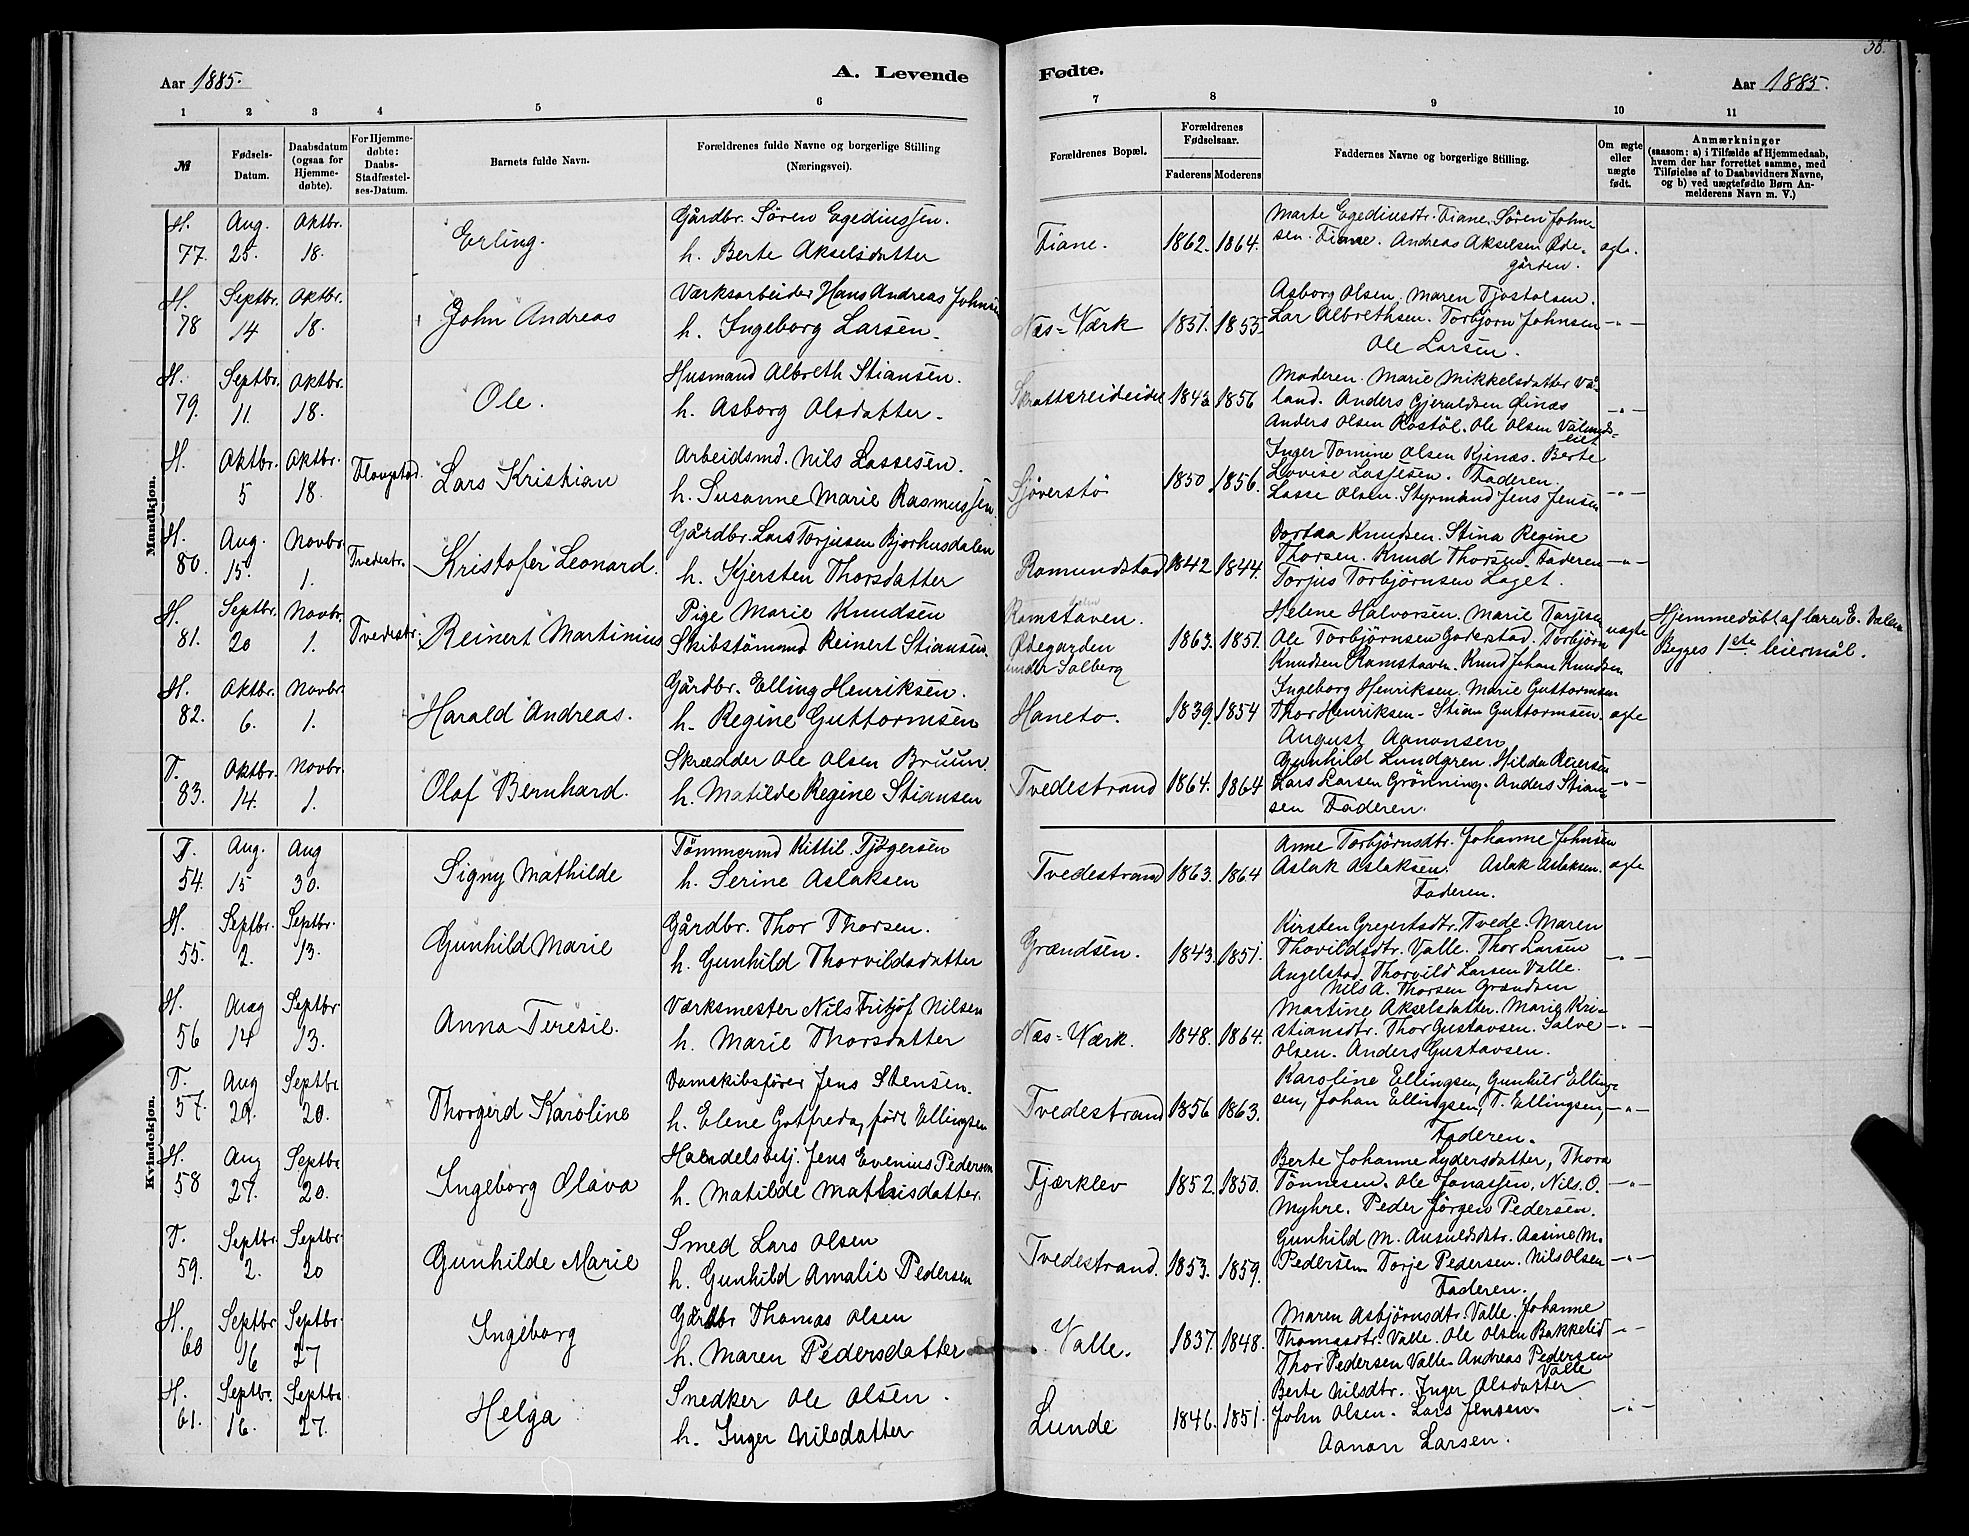 38.
Aar 1885.
A. Levende
Fødte.
Aar 1885.
1 2 3 4 5 6 7 8 9 10 11
№
Fødsels-
Datum.
Daabsdatum
(ogsaa for
Hjemme-
døbte).
For Hjemme-
døbte:
Daabs-
Stadfæstel-
ses-Datum.
Barnets fulde Navn.
Forældrenes fulde Navne og borgerlige Stilling
(Næringsvei).
Forældrenes Bopæl.
Forældrenes
Fødselsaar.
Faderens
Moderens
Faddernes Navne og borgerlige Stilling.
Om ægte
eller
uægte
født.
Anmærkninger
(saasom: a) i Tilfælde af Hjemmedaab,
hvem der har forrettet samme, med
Tilføielse af to Daabsvidners Navne,
og b) ved uægtefødte Børn An-
melderens Navn m. V.)
Mandkjøn.
H. 77. Aug. 25. Oktbr. 18.
Erling.
Gårdbr. Søren Egediussen.
h. Berte Akselsdatter
Fiane. 1862. 1864.
Marte Egediusdtr. Fiane. Søren John-
sen. Fiane. Andreas Akselsen Øde-
gården.
ægte.
H. 78 Septbr. 14 Oktbr. 18.
John Andreas
Værksarbeider Hans Andreas Johnsen
h. Ingeborg Larsen.
Næs-Værk 1851. 1855.
Asborg Olsen. Maren Tjostolsen.
Lar Albrethsen. Torbjørn Johnsen
Ole Larsen.
-"-
H. 79. Septbr. 11. Oktbr. 18.
Ole.
Husmand Albreth Stiansen.
h. Asborg Olsdatter.
1843 1856
Moderen. Marie Mikkelsdatter Vå-
land. Anders Gjeruldsen Øinæs
Anders Olsen Røstøl. Ole Olsen Valmuds-
eiet
-"-
H. Oktbr. 5 Oktbr. 18
Flangstad.
Lars Kristian
Arbeidsmd. Nils Lassesen.
h. Susanne Marie Rasmussen.
Sjøverstø 1850 1856.
Inger Tomine Olsen Kjinæs. Berte
Lovise Lassesen. Faderen.
Lasse Olsen. Styrmand Jens Jensen
-"-
H. 80. Aug. 15. Novbr. 1.
Tvedestr.
Kristofer Leonard.
Gårdbr. Lars Torjusen Bjorhusdalen
h. Kjersten Thorsdatter
Ramundstad 1842 1844.
Dortaa Knudsen. Stina Regine
Thorsen. Knud Thorsen. Faderen
Torjus Torbjørnsen Laget.
-"-
H. 81. Septbr. 20 Novbr. 1.
Tvedestr.
Reinert Martinius
Pige Marie Knudsen
Skibstömand Reinert Stiansen.
Ramstaven.
Ødegarden
under Solberg
1863. 1851.
Helene Halvorsen. Marie Torjesen
Ole Torbjørnsen Goderstad. Torbjørn
Knudsen Ramstaven. Knud Johan Knudsen
uægte
Hjemmedøbt af lærer E. Dalen
Begges 1ste leiermål.
H. 82. Oktbr. 6. Novbr. 1.
Harald Andreas.
Gårdbr. Elling Henriksen.
h. Regine Guttormsen
Haneto. 1839. 1854
Ingeborg Henriksen. Marie Guttormsen
Thor Henriksen. Stian Guttormsen.
August Aanonsen
ægte
T. 83. Oktbr. 14. Novbr. 1.
Olaf Bernhard.
Skrædder Ole Olsen Bruun.
h. Matilde Regine Stiansen
Tvedestrand 1864. 1864
Gunhild Lundgren. Hilda Reiersen
Lars Larsen Grønning. Anders Stian-
sen Faderen.
-"-
Kvindekjøn.
T. 54. Aug. 15 Aug 30.
Signy Mathilde
Tömmermd Kittil Tjøgersen
h. Serine Aslaksen
Tvedestrand 1863. 1864
Anne Torbjørnsdtr. Johanne Johnsen
Aslak Aslaksen. Aslak Aslaksen.
Faderen.
ægte
H. 55. Septbr. 2. Septbr. 13.
Gunhild Marie
Gårdbr. Thor Thorsen.
h. Gunhild Thorvildsdatter
Grændsen. 1843. 1851.
Kirsten Gregertsdtr. Tvede. Maren
Thovildsdtr. Valle. Thor Larsen
Angelstad. Thorvild Larsen Valle.
Nils A. Thorsen Grændsen
-"-
H. 56 Aug 14 Septbr 13.
Anna Teresie.
Værksmester Nils Fritjof Nilsen
h. Marie Thorsdatter
Næs-Værk. 1848. 1864.
Martine Akselsdatter. Marie Kri-
stiansdtr. Thor Gustavsen. Salve
Olsen. Anders Gustavsen.
-"-
T. 57. Aug 29. Septbr 20.
Thorgerd Karoline
Damskibsfører Jens Stensen.
h. Elene Gotfreda, født Ellingsen
Tvedestrand 1856 1863.
Karoline Ellingsen, Gunhild Elling-
sen, Johan Ellingsen, T. Ellingsen,
Faderen.
-"-
H. 58 Aug 27. Septbr 20.
Ingeborg Olava
Handelsbetj. Jens Evenius Pedersen
h. Matilde Mathisdatter.
Fjærklev 1852. 1850.
Berte Johanne Lydersdatter, Thora
Tønnesen. Ole Jonassen, Nils O.
Myhre. Peder Jørgen Pedersen.
-"-
T. 59. Septbr 2. Septbr. 20
Gunhilde Marie
Smed Lars Olsen
h. Gunhild Amalie Pedersen
Tvedestrand. 1853. 1859.
Gunhild M. Ansuldsdtr. Aasine M.
Pedersen Torje Pedersen. Nils Olsen
Faderen.
-"-
H. 60 Septbr 16 Septbr. 27
Ingeborg
Gårdbr Thomas Olsen
h. Maren Pedersdatter
Valle. 1837. 1848.
Maren Asbjørnsdtr. Valle. Johanne
Thomasdtr. Valle. Ole Olsen Bakkelid
Thor Pedersen Valle. Andreas Pedersen
Valle
-"-
H. 61. Septbr. 16. Septbr 27.
Helga
Snedker Ole Olsen.
h. Inger Nilsdatter
Lunde 1846. 1851.
Berte Nilsdtr. Inger Olsdatter
John Olsen. Lars Jensen.
Aanon Larsen.
-"-